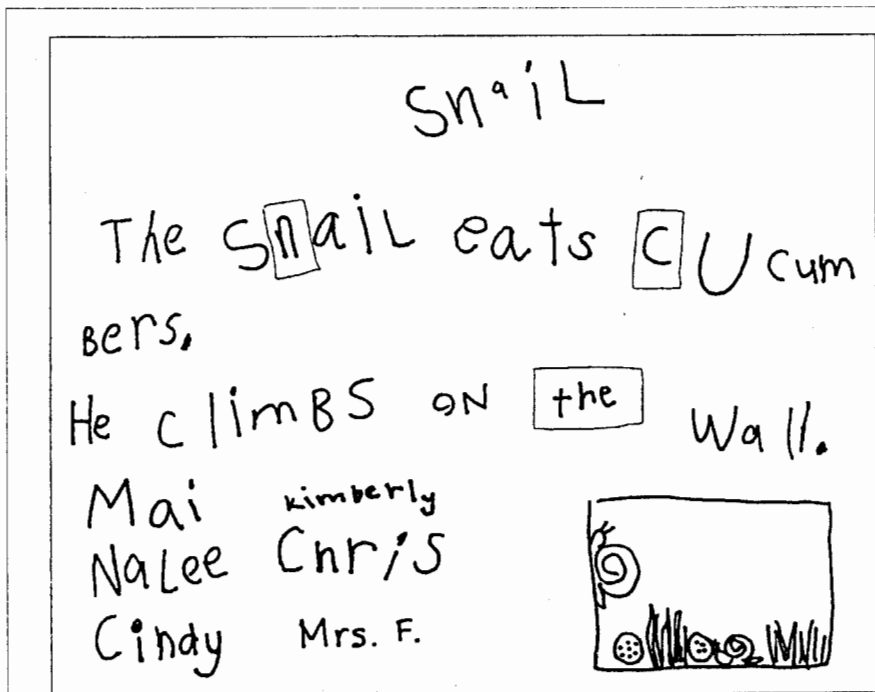 SnaiL
The SnaiL eats CUcum
Bers.
He climBS oN the Wall.
Mai kimberly
NaLee Chris
Cindy Mrs. F.